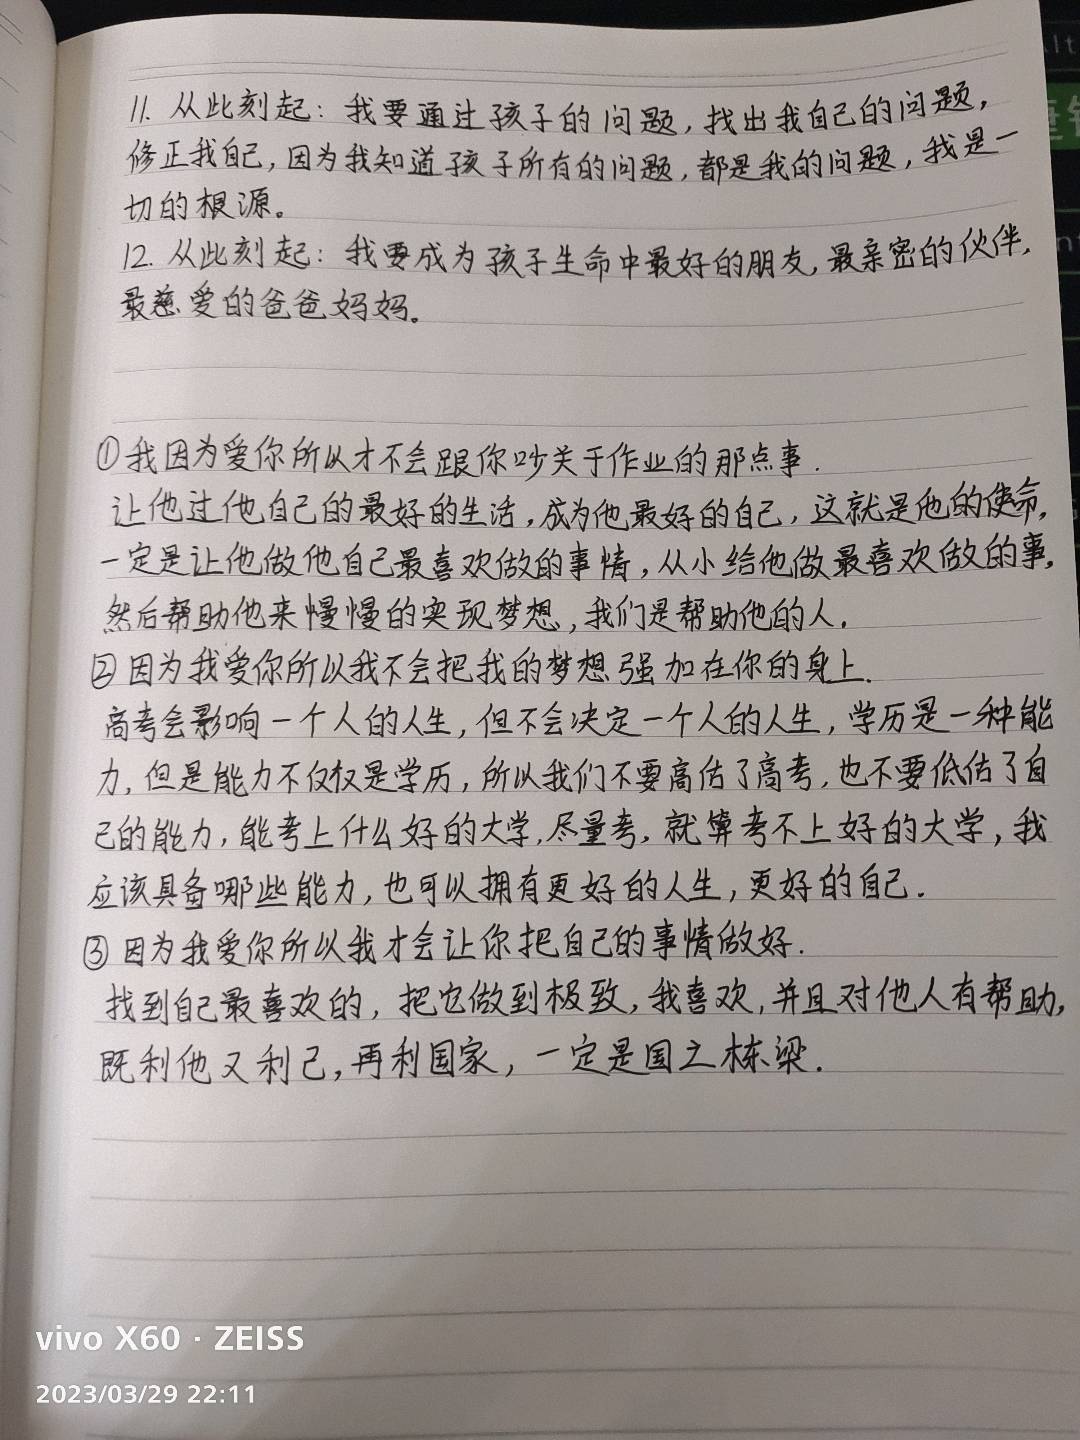 11. 从此刻起：我要通过孩子的问题，找出我自己的问题，
修正我自己，因为我知道孩子所有的问题，都是我的问题，我是一
切的根源。
12. 从此刻起：我要成为孩子生命中最好的朋友，最亲密的伙伴，
最慈爱的爸爸妈妈。
①我因为爱你所以才不会跟你吵关于作业的那点事.
让他过他自己的最好的生活，成为他最好的自己，这就是他的使命，
一定是让他做他自己最喜欢做的事情，从小给他做最喜欢做的事，
然后帮助他来慢慢的实现梦想，我们是帮助他的人.
②因为我爱你所以我不会把我的梦想强加在你的身上.
高考会影响一个人的人生，但不会决定一个人的人生，学历是一种能
力，但是能力不仅仅是学历，所以我们不要高估了高考，也不要低估了自
己的能力，能考上什么好的大学，尽量考，就算考不上好的大学，我
应该具备哪些能力，也可以拥有更好的人生，更好的自己.
③因为我爱你所以我才会让你把自己的事情做好.
找到自己最喜欢的，把它做到极致，我喜欢，并且对他人有帮助，
既利他又利己，再利国家，一定是国之栋梁.
vivo X60 · ZEISS
2023/03/29 22:11